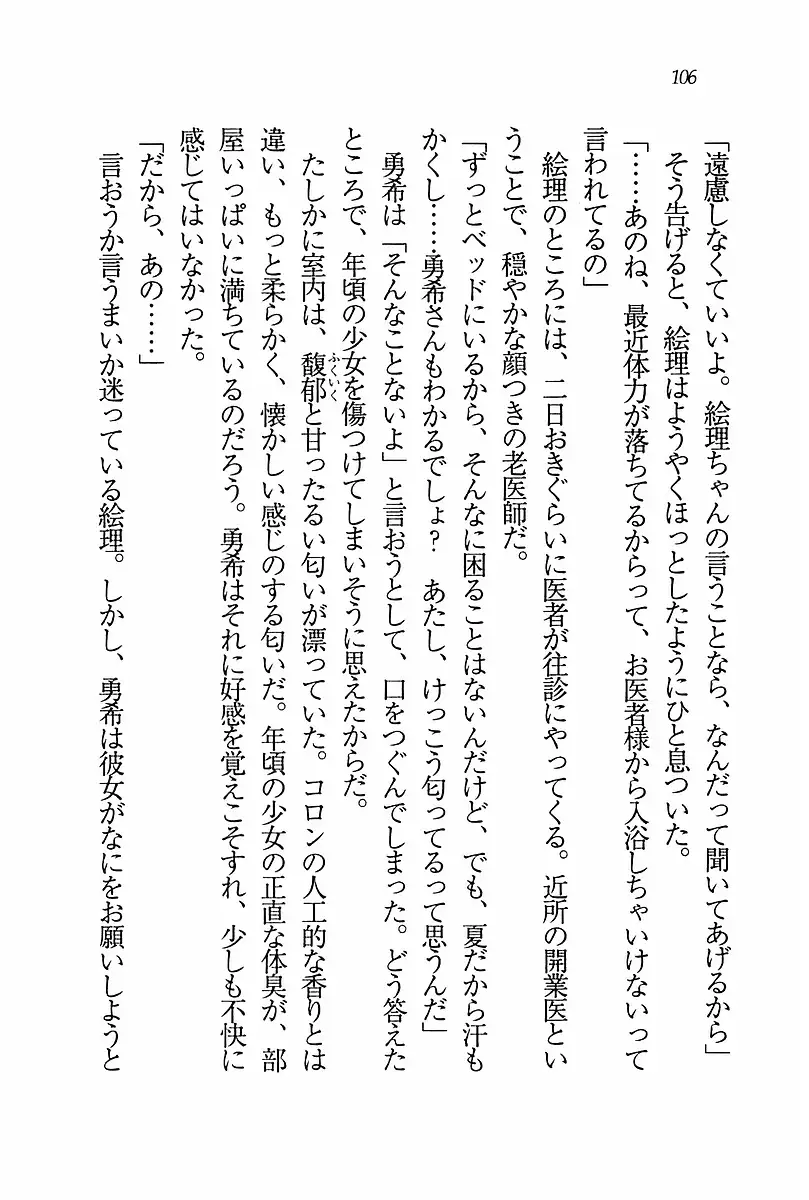 106
「遠慮しなくていいよ。絵理ちゃんの言うことなら、なんだって聞いてあげるから」
そう告げると、絵理はようやくほっとしたようにひと息ついた。
「……あのね、最近体力が落ちてるからって、お医者様から入浴しちゃいけないって
言われてるの」
絵理のところには、二日おきぐらいに医者が往診にやってくる。近所の開業医とい
うことで、穏やかな顔つきの老医師だ。
「ずっとベッドにいるから、そんなに困ることはないんだけど、でも、夏だから汗も
かくし……勇希さんもわかるでしょ？　あたし、けっこう匂ってるって思うんだ」
勇希は「そんなことないよ」と言おうとして、口をつぐんでしまった。どう答えた
ところで、年頃の少女を傷つけてしまいそうに思えたからだ。
たしかに室内は、馥郁ふくいくと甘ったるい匂いが漂っていた。コロンの人工的な香りとは
違い、もっと柔らかく、懐かしい感じのする匂いだ。年頃の少女の正直な体臭が、部
屋いっぱいに満ちているのだろう。勇希はそれに好感を覚えこそすれ、少しも不快に
感じてはいなかった。
「だから、あの……」
言おうか言うまいか迷っている絵理。しかし、勇希は彼女がなにをお願いしようと